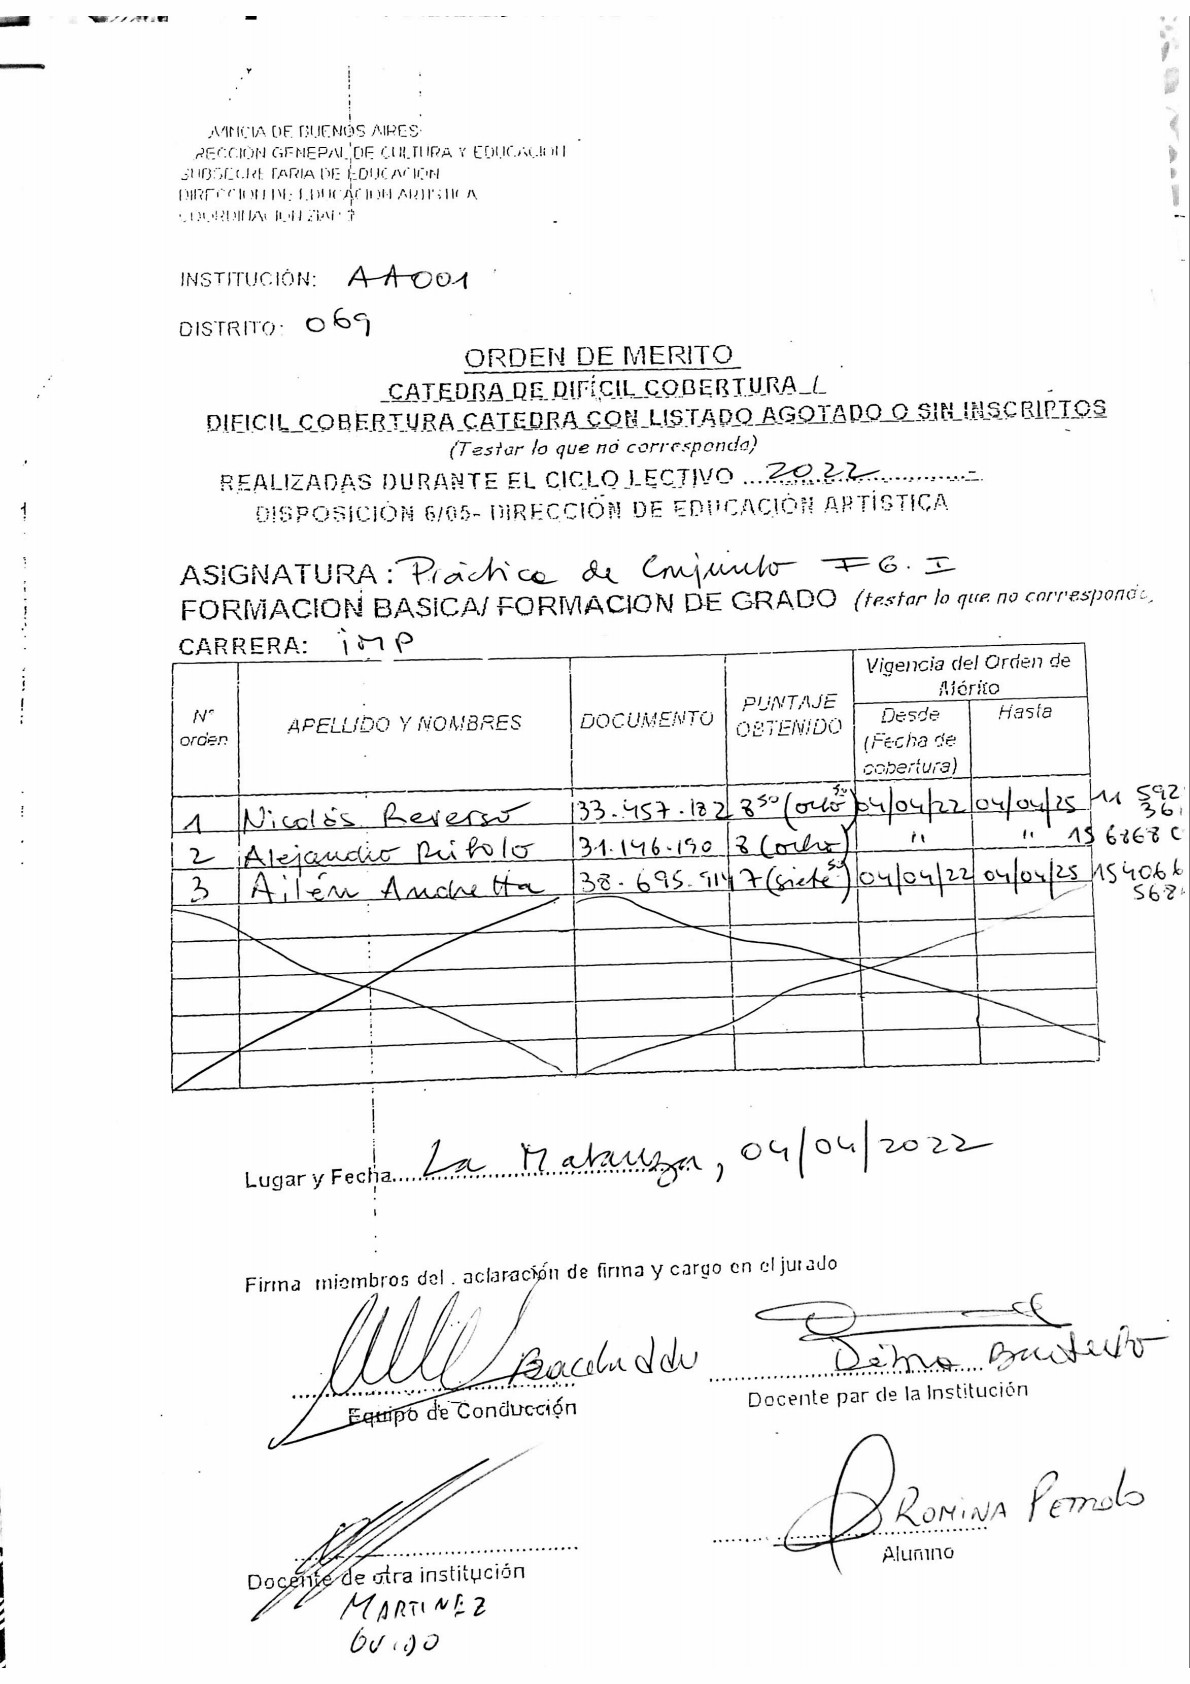 VINCIA DE BUENOS AIRES
RECCIÓN GENERAL DE CULTURA Y EDUCACIÓN
SUBSECRETARIA DE EDUCACIÓN
DIRECCION DE EDUCACION ARTISTICA
INSTITUCIÓN: AA001
DISTRITO: 069
ORDEN DE MERITO
CATEDRA DE DIFÍCIL COBERTURA /
DIFICIL COBERTURA CATEDRA CON LISTADO AGOTADO O SIN INSCRIPTOS
(Testar lo que no corresponda)
REALIZADAS DURANTE EL CICLO LECTIVO ...2022...
DISPOSICIÓN 6/05- DIRECCIÓN DE EDUCACIÓN ARTÍSTICA
ASIGNATURA: Práctica de Conjunto FG. I
FORMACION BASICA/ FORMACION DE GRADO (testar lo que no corresponda,
CARRERA: iMP
N° orden APELLIDO Y NOMBRES DOCUMENTO PUNTAJE OBTENIDO Vigencia del Orden de Mérito
Desde (Fecha de cobertura) Hasta
1 Nicolás Reverso 33.457.182 8 50 (ocho 50) 04/04/22 04/04/25 11 592
36
2 Alejandro 31.146.190 8 (ocho) " " 15 6868
3 Ailén Andretta 38.695.914 7 (siete 50) 04/04/22 04/04/25 154066
568
Lugar y Fecha...... La Matanza, 04/04/2022
Firma miembros del . aclaración de firma y cargo en el jurado
Equipo de Conducción
Docente par de la Institución
ROMINA
Alumno
Docente de otra institución
MARTINEZ
GUIDO